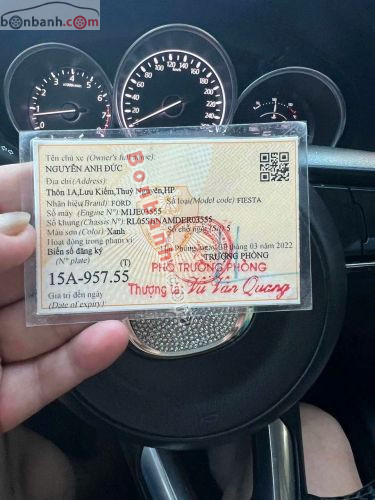 bonbanh.com
Tên chủ xe (Owner's full name):
NGUYỄN ANH ĐỨC
Địa chỉ (Address):
Thôn 1A, Lưu Kiếm, Thuỷ Nguyên, HP
Nhãn hiệu (Brand): FORD Số loại (Model code): FIESTA
Số máy (Engine N°): MIJE03555
Số khung (Chassis N°): RL05SHNAMDER03555
Màu sơn (Color): Xanh Số chỗ ngồi (Sit) 5
Hoạt động trong phạm vi
Biển số đăng ký Hải Phòng, ngày 10 tháng 03 năm 2022
(N° plate) (T) TRƯỞNG PHÒNG
PHÓ TRƯỞNG PHÒNG
15A-957.55
Giá trị đến ngày Thượng tá: Vũ Văn Quang
(Date of expiry)
Bonbanh.com